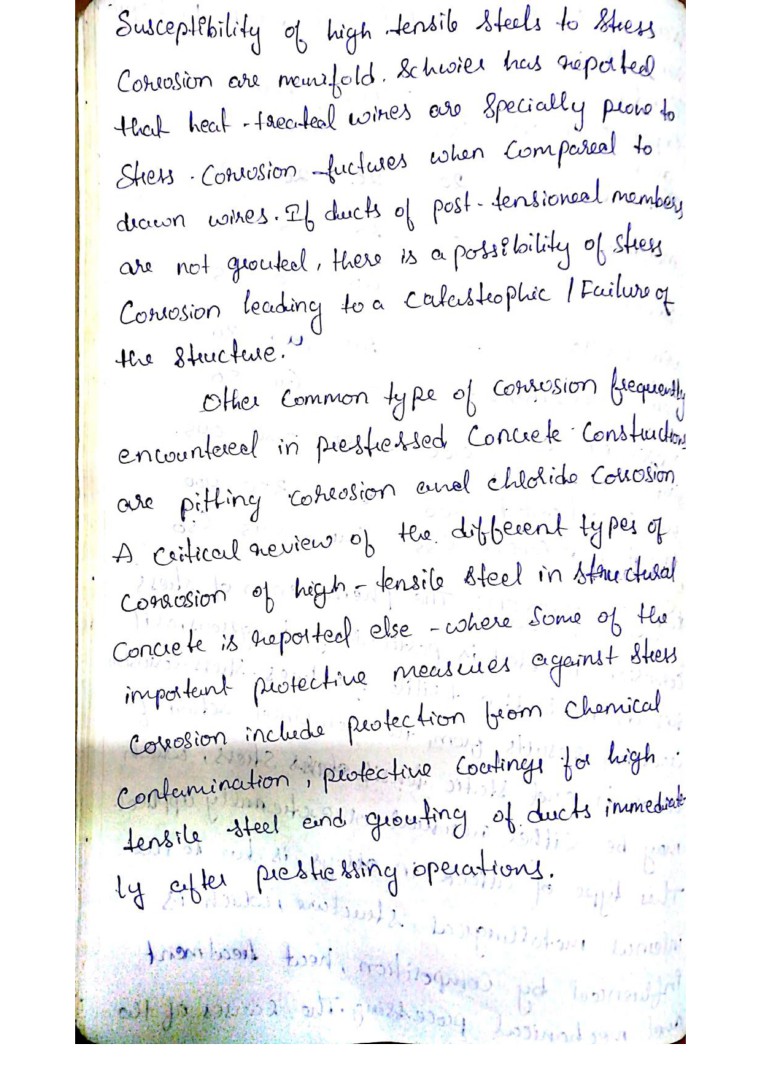 Susceptibility of high tensile steels to stress
Corrosion are manifold. Schwier has reported
that heat-treated wires are specially prone to
stress. Corrosion fuctures when compared to
drawn wires. If ducts of post-tensioned members
are not grouted, there is a possibility of stress
Corrosion leading to a catastrophic / Failure of
the structure."
Other common type of corrosion frequently
encountered in prestressed Concrete Constructions
are pitting corrosion and chloride corrosion
A critical review of the different types of
corrosion of high-tensile steel in structural
Concrete is reported else-where some of the
important protective measures against stress
Corrosion include protection from chemical
Contamination, protective coatings for high
tensile steel and grouting of ducts immediate
ly after prestressing operations.